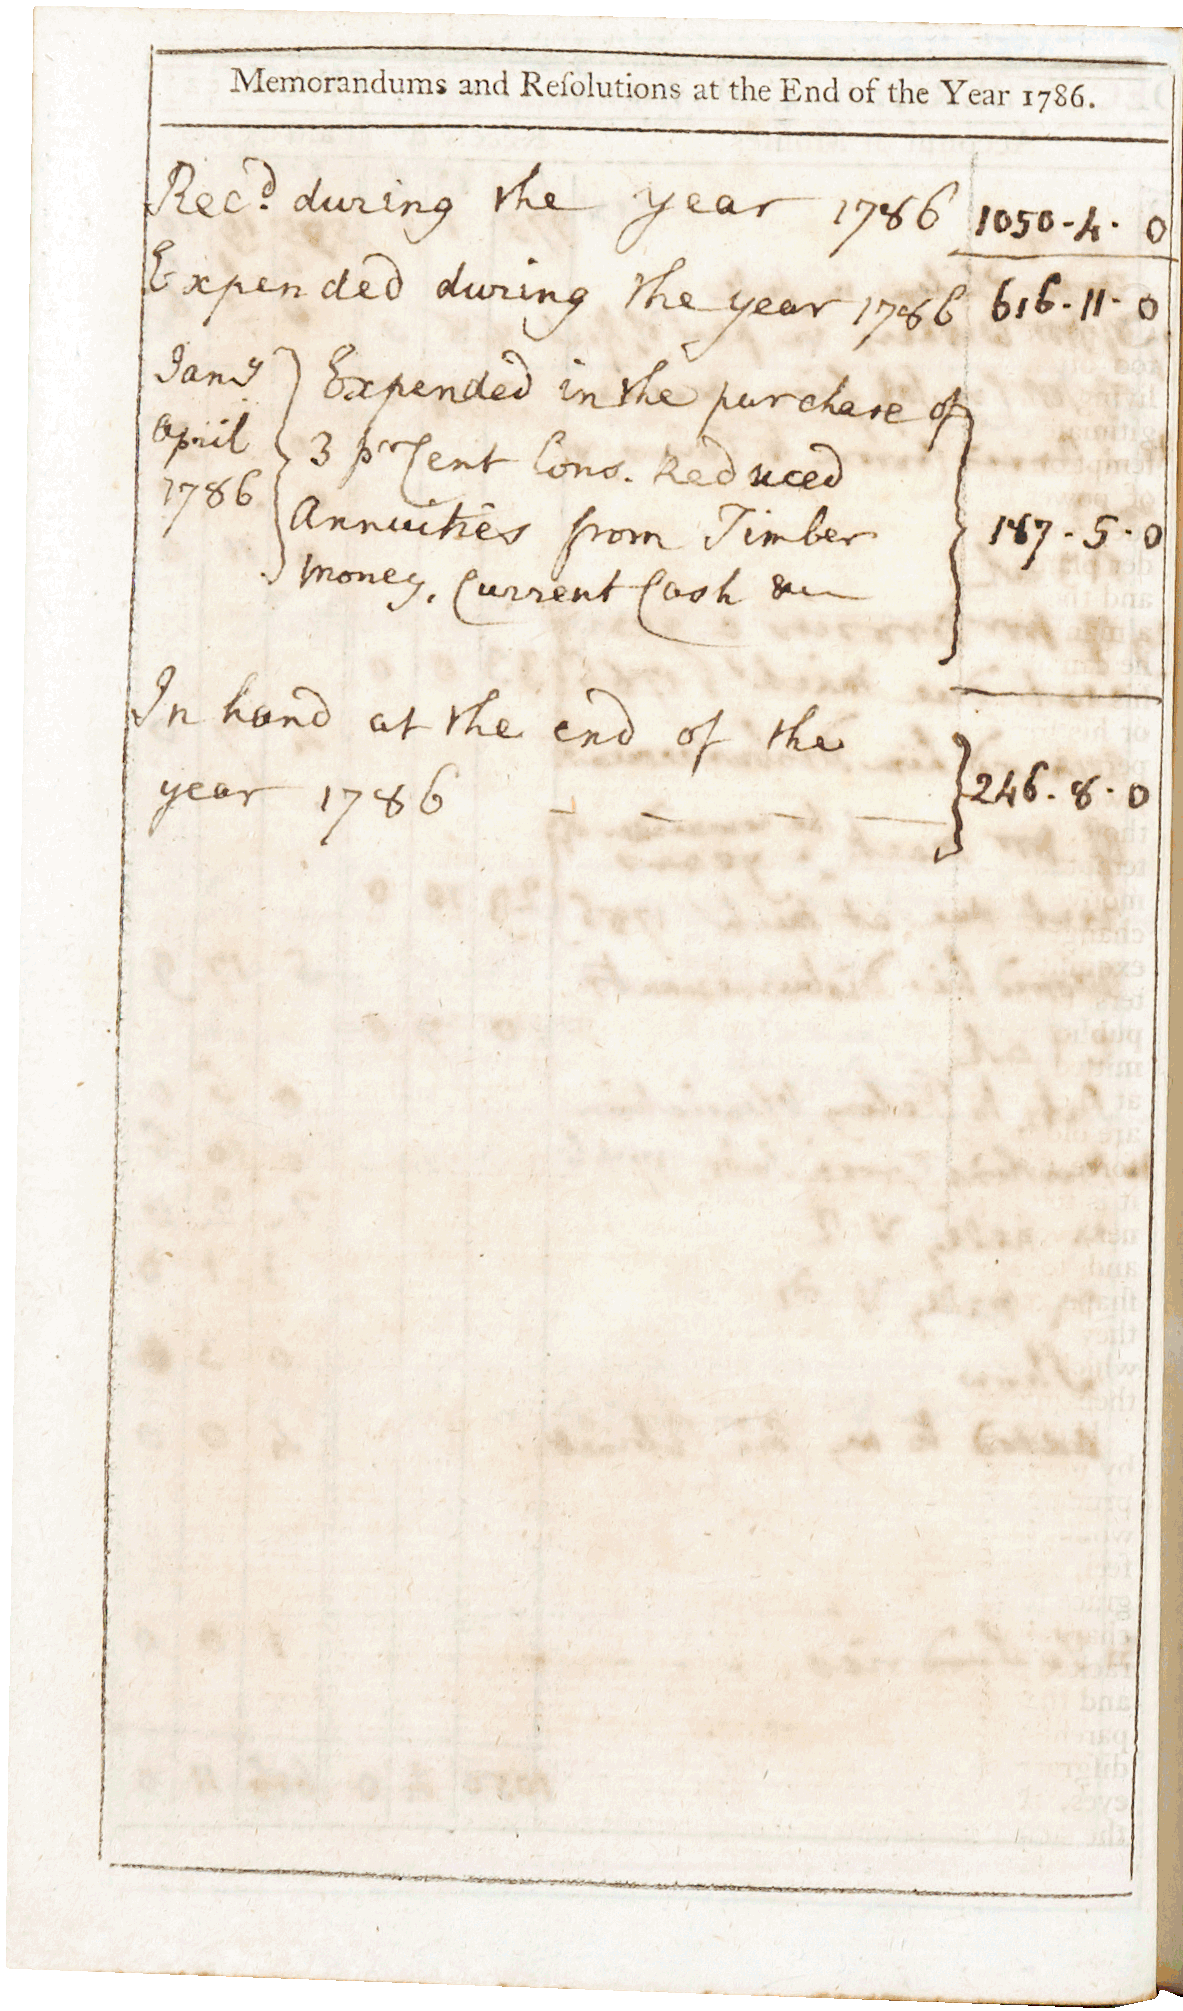 Memorandums and Reſolutions at the End of the Year 1786.
Rec.d during the year 1786 1050-4-0
Expended during the year 1786 616-11-0
Jany } Expended in the purchase of
april 3 pr Cent Cons. Reduced
1786 Annuities from Timber 187-5-0
money, Current Cash &c
In hand at the end of the
year 1786 - - - - } 246-8-0